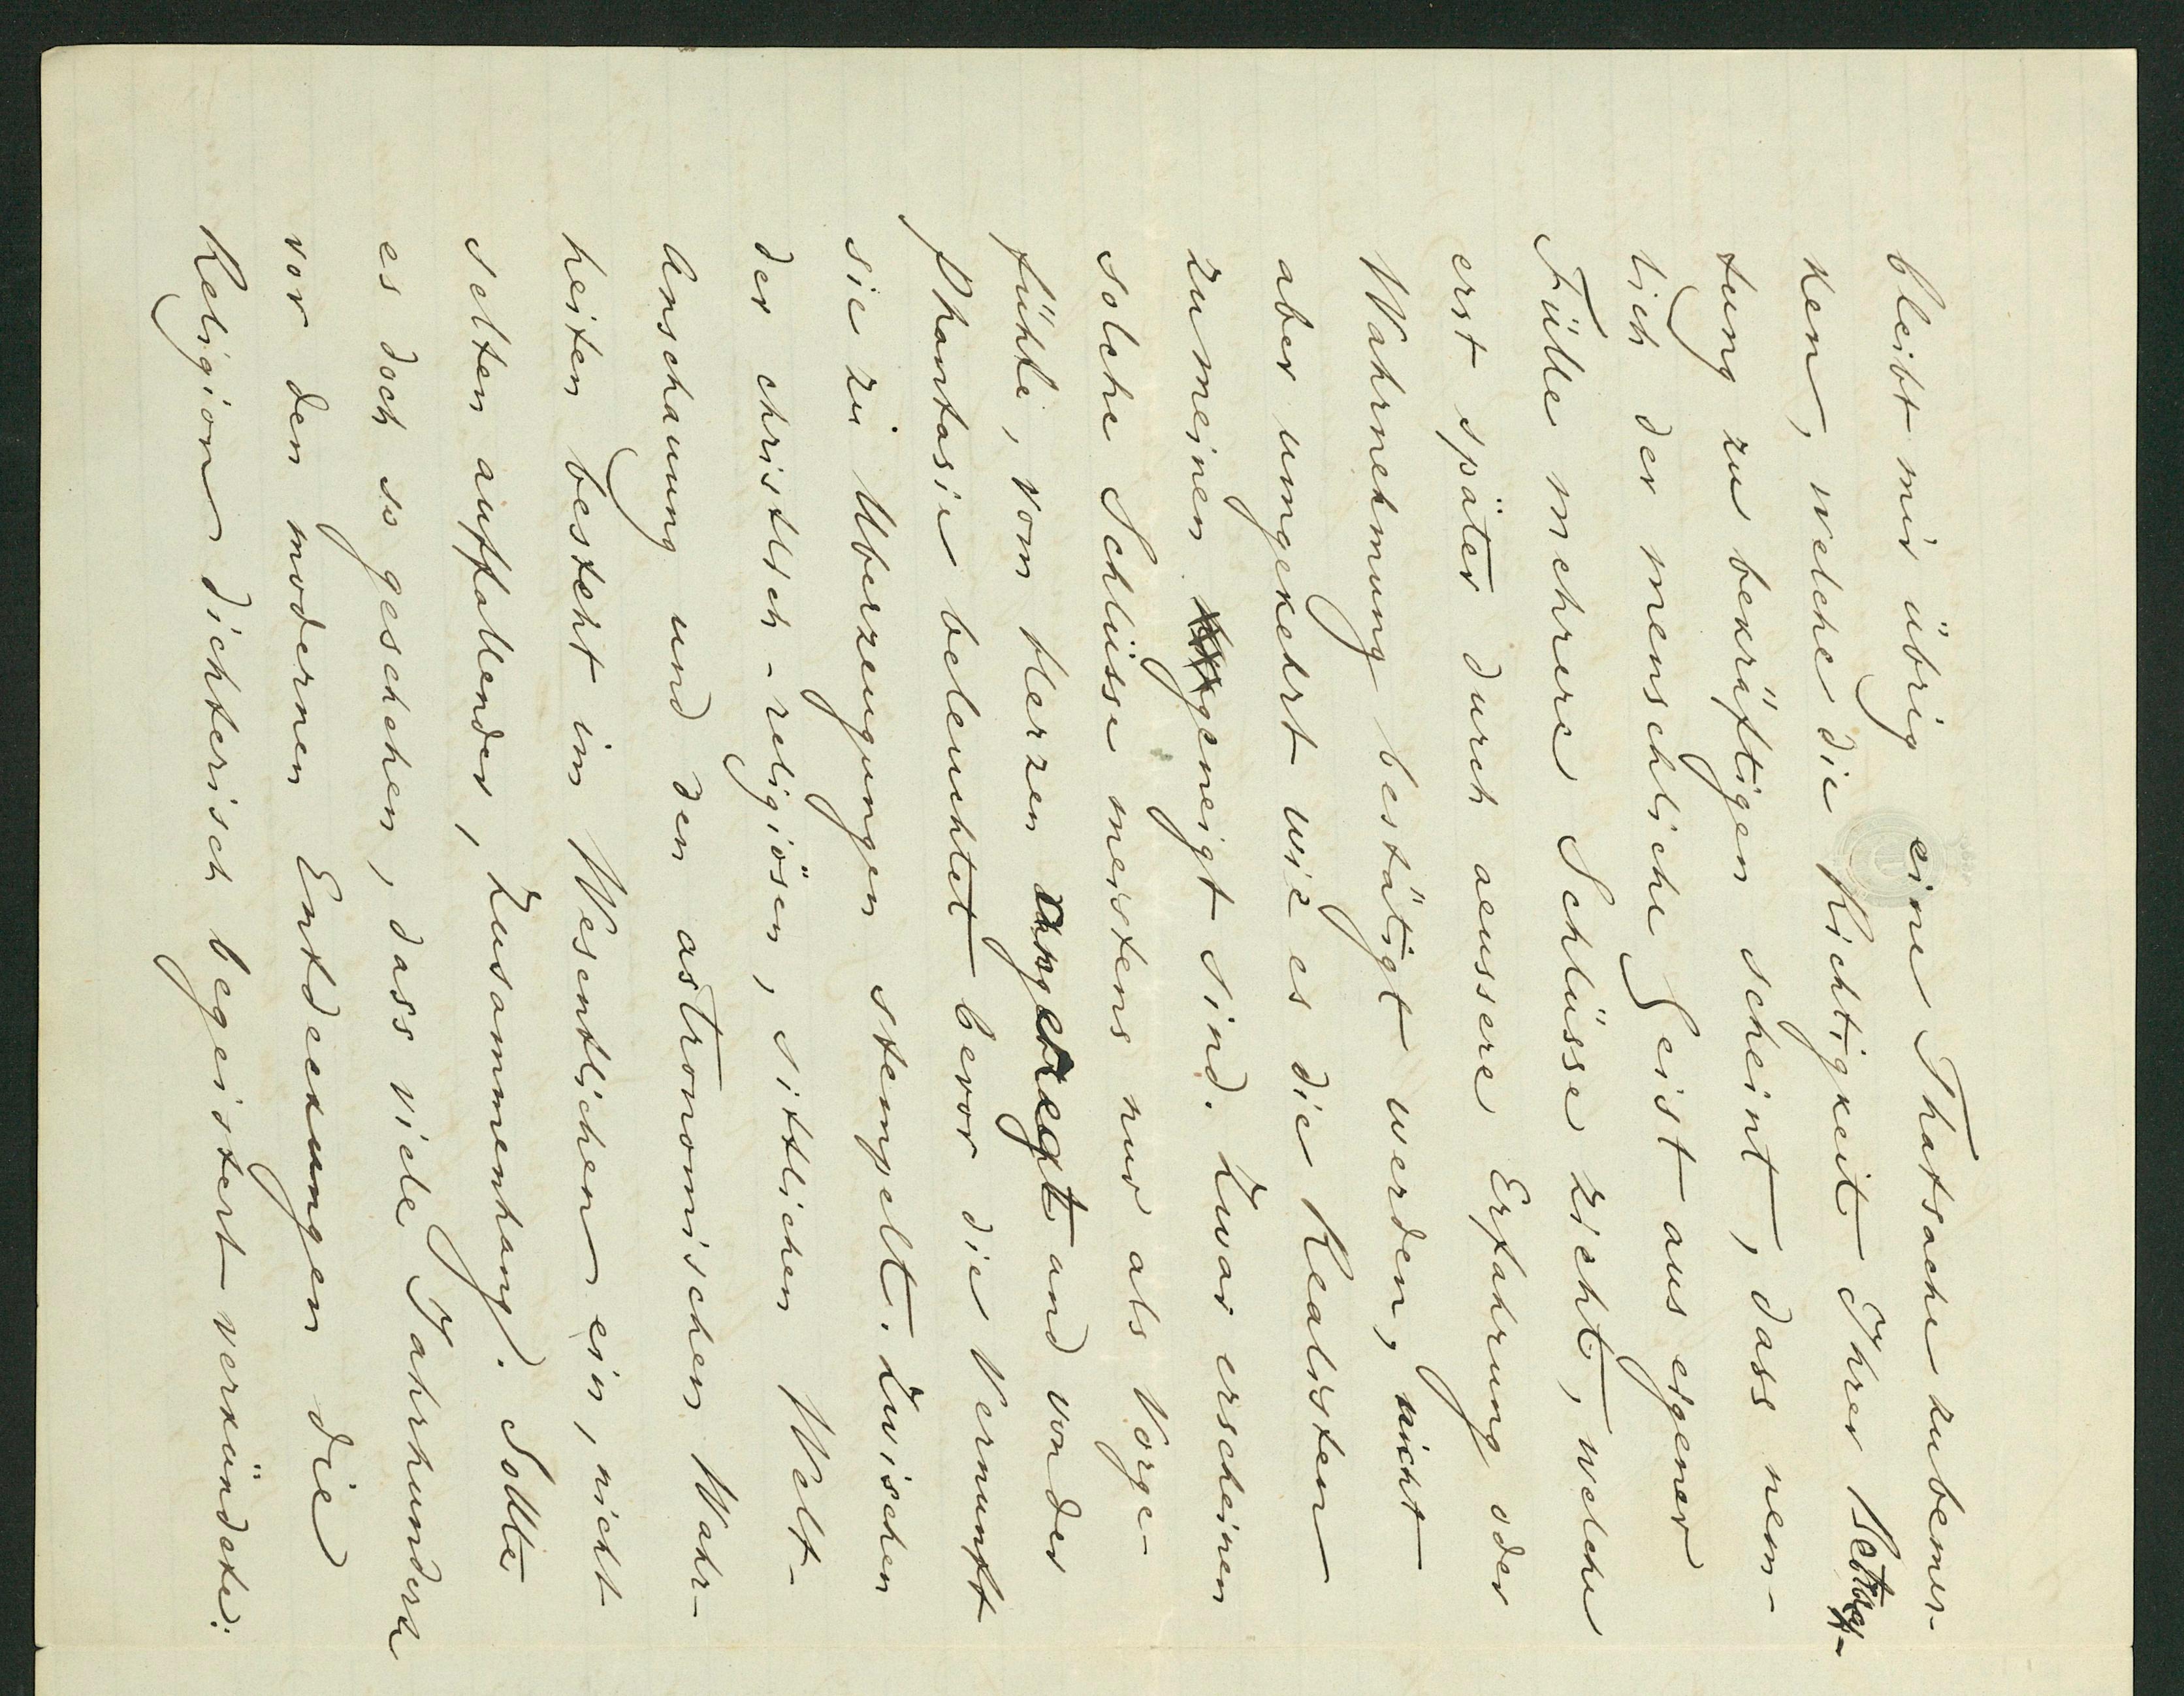 bleibt mir übrig eine Thatsache zubemer-
ken, welche die Richtigkeit Ihrer Betrach-
tung zu bekräftigen scheint, dass nem-
lich der menschliche Geist aus eigener
Fülle mehrere Schlüsse zieht, welche
erst später durch aeussere Erfahrung oder
Wahrnehmung bestätigt werden, nicht
aber umgekehrt wie es die Realisten
zu meinen geneigt sind. Zwar erscheinen
solche Schlüsse meistens nur als Vorge-
fühle, vom Herzen angeregt und von der
Phantasie beleuchtet bevor die Vernunft
sie zu Uberzeugungen stempelt. Zwischen
der christlich-religiösen, sittlichen Welt-
Anschauung und den astronomischen Wahr-
heiten besteht im Wesentlichen ein, nicht
selten auffallender, Zusammenhang. Sollte
es doch so geschehen, dass viele Jahrhunderte
vor den modernen Entdeckungen die
Religion dichterisch begeistert verkündete: